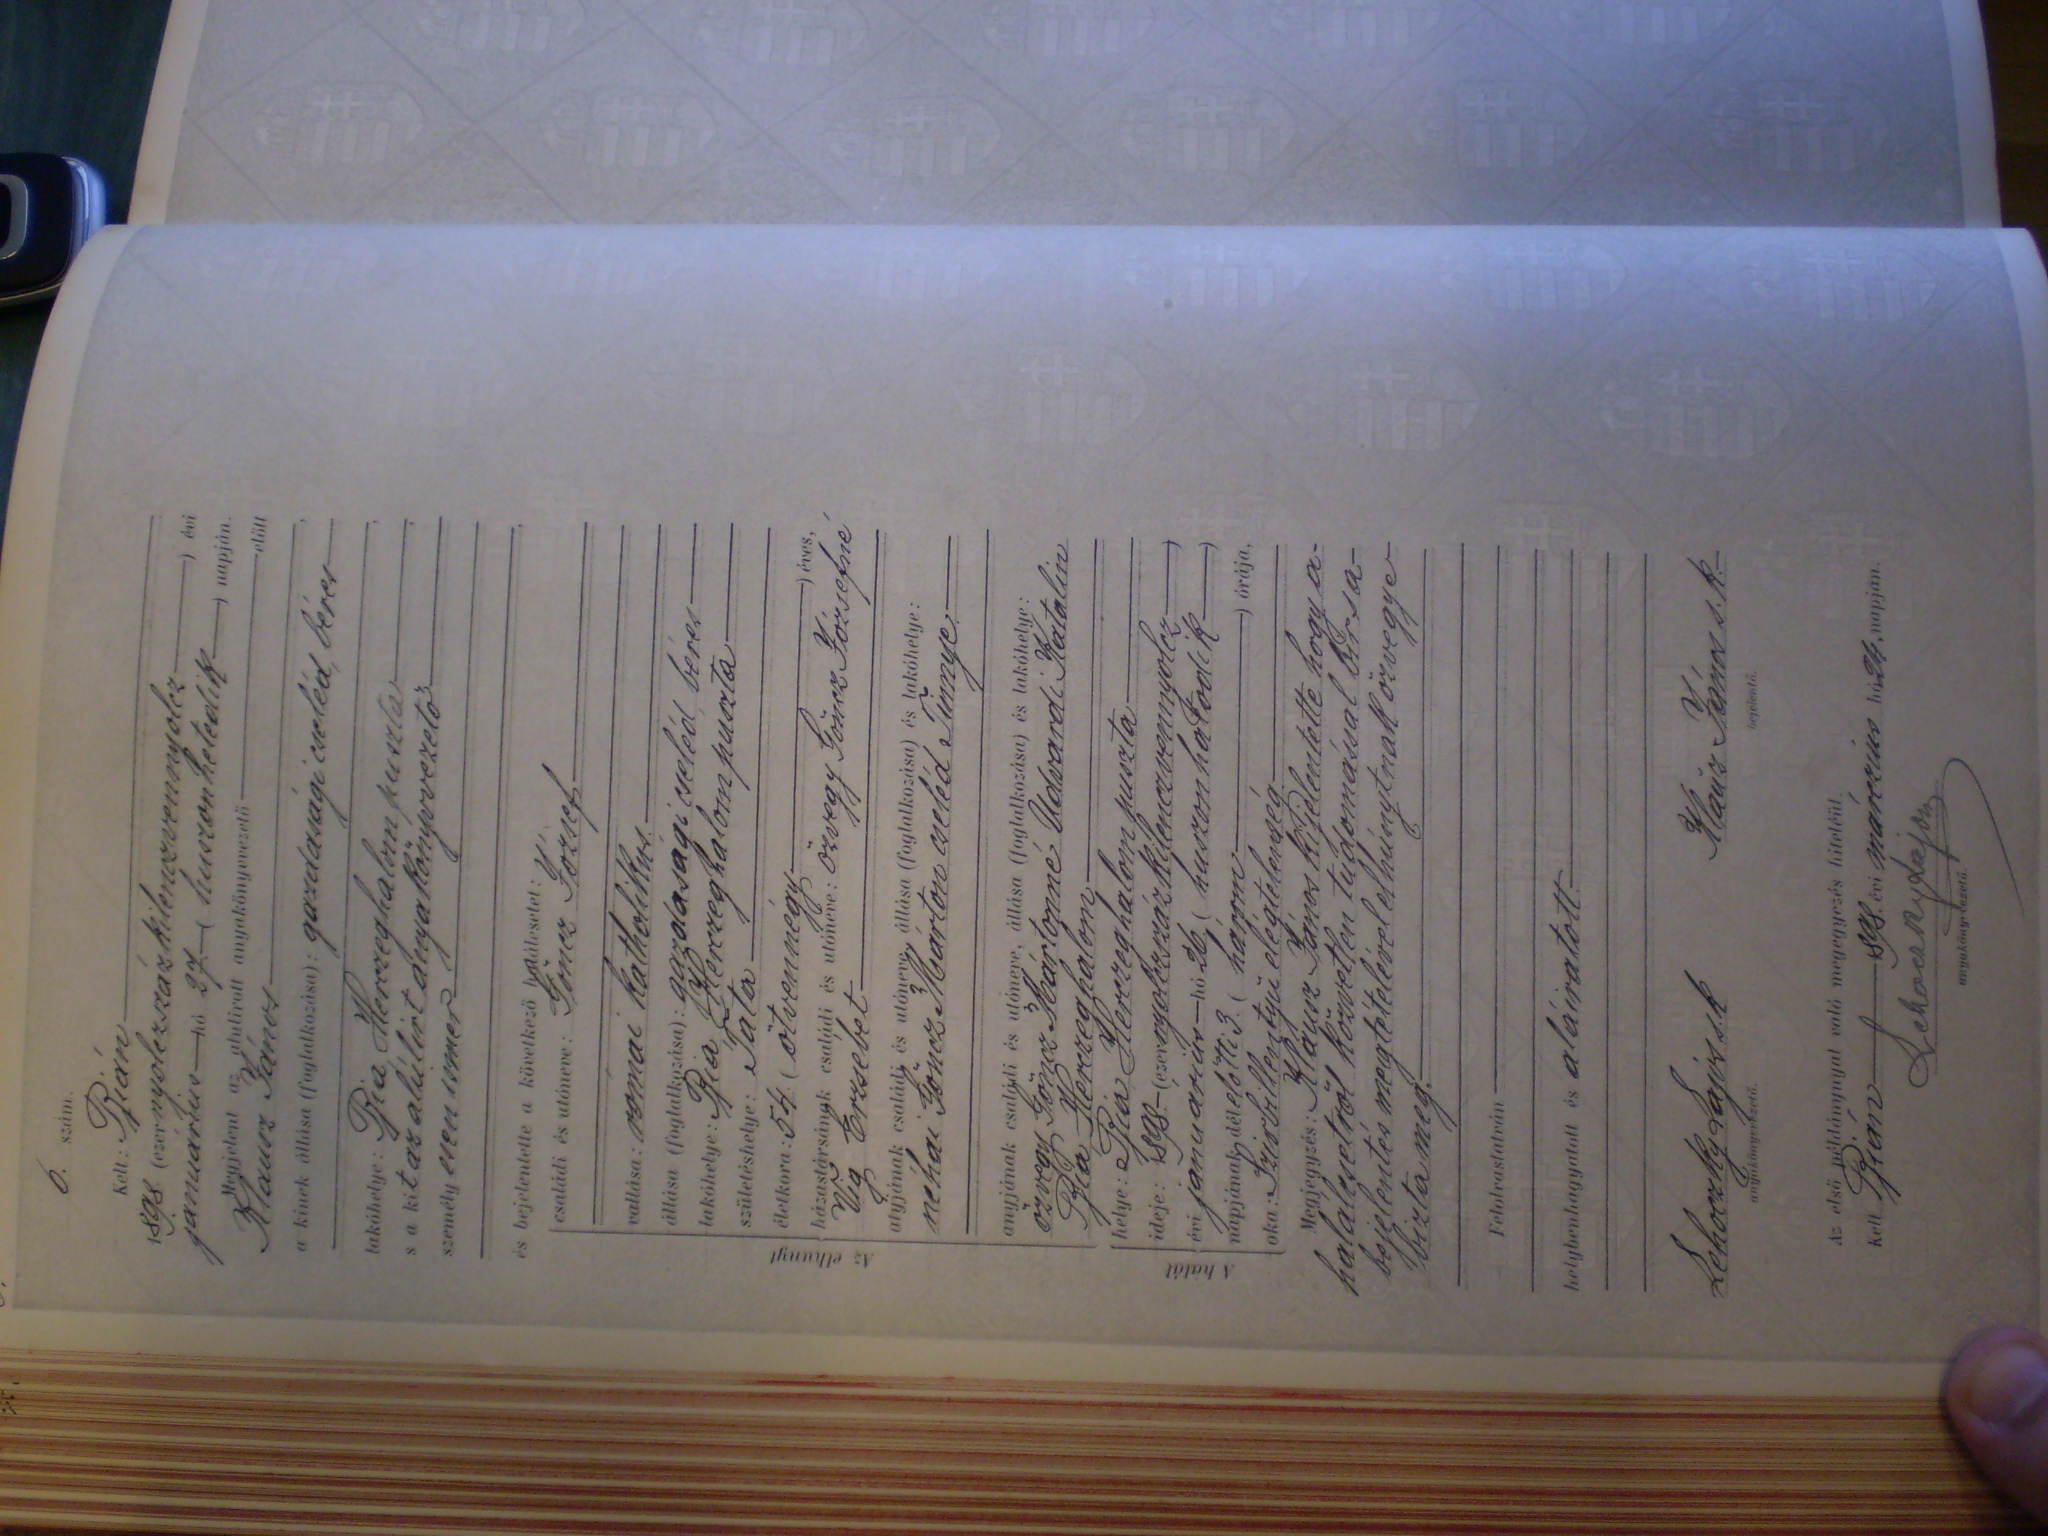 6. szám.
Kelt: Bián
1898. (ezernyolczszázkilenczvennyolcz) évi
január hó 27 (huszonhetedik) napján.
Megjelent az alulirott anyakönyvvezető előtt
Klausz János
a kinek állása (foglalkozása): gazdasági cseléd, béres
lakóhelye: Bia Herczeghalom puszta,
s a kit az alulirt anyakönyvvezető
személyesen ismer
és bejelentette a következő halálesetet:
családi és utóneve: Göncz József
vallása: római katholikus.
állása (foglalkozása): gazdasági cseléd béres
lakóhelye: Bia Herczeghalom puszta
születéshelye: Tata
életkora: 54 (ötvennégy) éves,
házastársának családi és utóneve: özvegy Göncz Józsefné
Víg Erzsébet
atyjának családi és utóneve, állása (foglalkozása) és lakóhelye:
néhai Göncz Márton cseléd Tinnye
anyjának családi és utóneve, állása (foglalkozása) és lakóhelye:
özvegy Göncz Mártonné Udvardi Katalin
Bia Herczeghalom
helye: Bia Herczeghalom puszta
ideje: 1898. (ezernyolczszázkilenczvennyolcz)
évi január hó 26 (huszonhatodik)
napjának délelőtti 3 (három) órája,
oka: Szivbillentyü elégtelenség
Az elhunyt
A halál
Megjegyzés: Klausz János kijelentette hogy a
halálesetről közvetlen tudomásával bir s a
bejelentés megtételével elhúnytnak özvegye
bizta meg.
Felolvastatván
helybenhagyatott és aláiratott.
Lehoczky Lajos s.k. Klausz János s.k.
anyakönyvvezető. bejelentő.
Az első példánynyal való megegyezés hiteléül.
Kelt Bián 1898. évi márczius hó 24. napján.
Lehoczky Lajos
anyakönyvvezető.